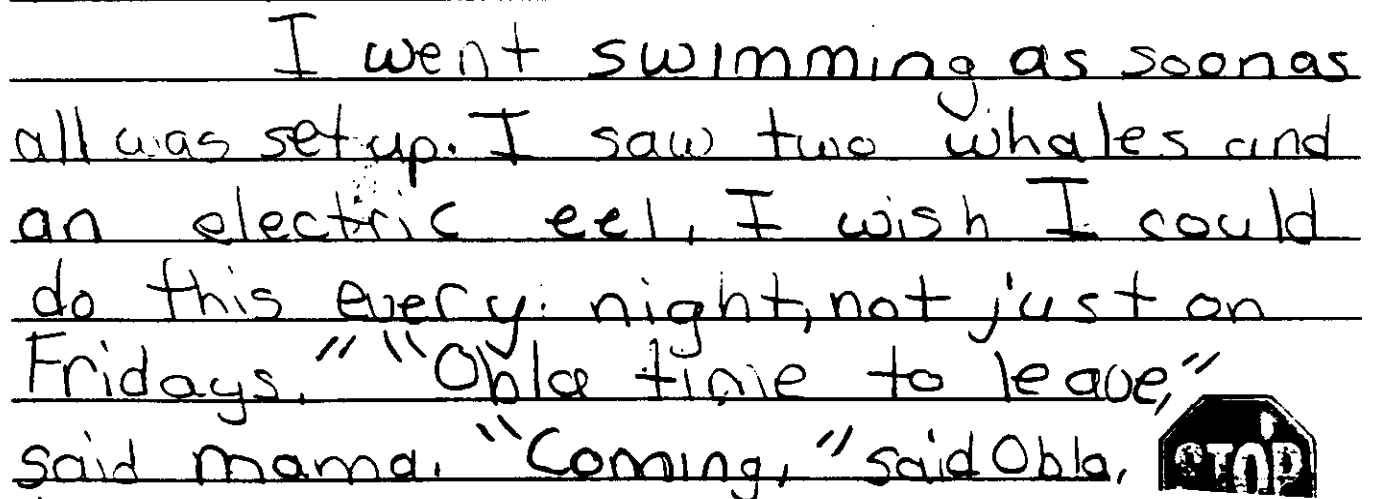 I went swimming as soon as
all was set up. I saw two whales and
an electric eel, I wish I could
do this every night, not just on
Fridays." "Obla time to leave,"
said mama. "Coming," said Obla.
STOP